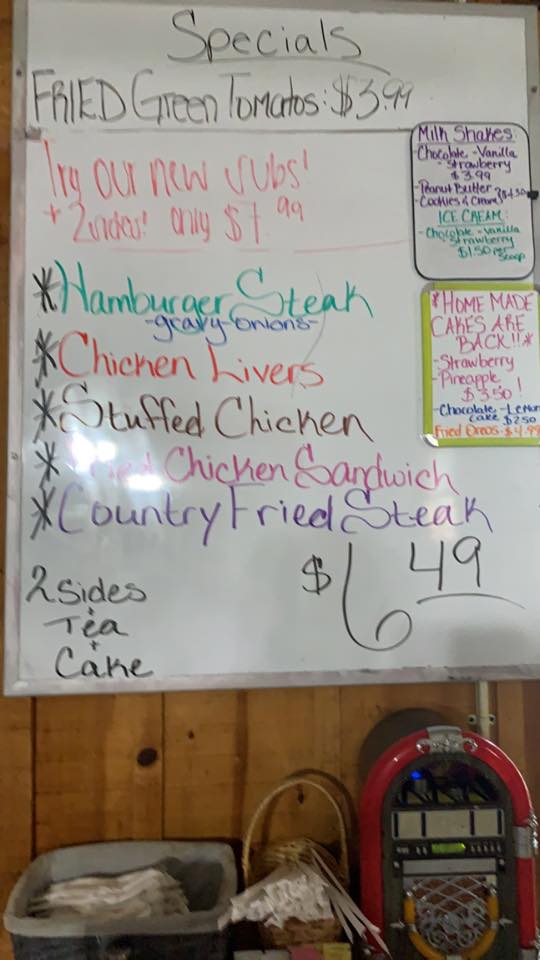 Specials
FRIED Green Tomatos: $3.99
Try our new subs!
+ 2 sides! only $7.99
*Hamburger Steak
-gravy-onions-
*Chicken Livers
*Stuffed Chicken
*Fried Chicken Sandwich
*Country Fried Steak
2 Sides
+
Tea
+
Cake
$6.49
Milk Shakes:
-Chocolate -Vanilla
-Strawberry
$3.99
-Peanut Butter
-Cookies & Cream
ICE CREAM:
-Chocolate -Vanilla
-Strawberry
$1.50 per
Scoop
*HOME MADE
CAKES ARE
BACK!!*
-Strawberry
-Pineapple
$3.50!
-Chocolate -Lemon
Cake $2.50
Fried Oreos-$4.99